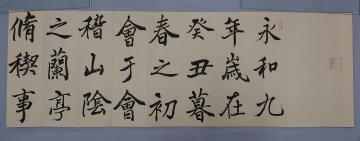 永和九
年歲在
癸丑暮
春之初
會于會
稽山陰
之蘭亭
脩稧事